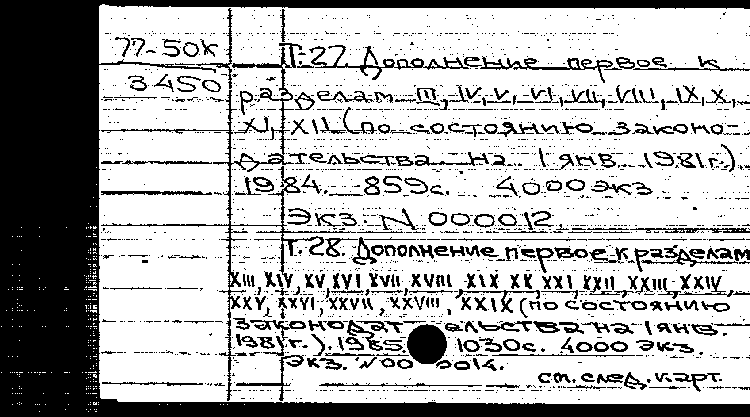 77-50к
3450
Т.27. Дополнение первое к
разделам III, IV, V, VI, VII, VIII, IX, X,
XI, XII (по состоянию законо-
дательства на 1 янв. 1981г.)
1984. 859с. 4000 экз
Экз. N 000012
Т.28. Дополнение первое к разделам
XIII, XIV, XV, XVI, XVII, XVIII, XIX, XX, XXI, XXII, XXIII, XXIV,
XXV, XXVI, XXVII, XXVIII, XXIX (по состоянию
законодательства на 1 янв.
1981г.). 1985. 1030с. 4000 экз.
Экз. N 00 0014.
см. след. карт.